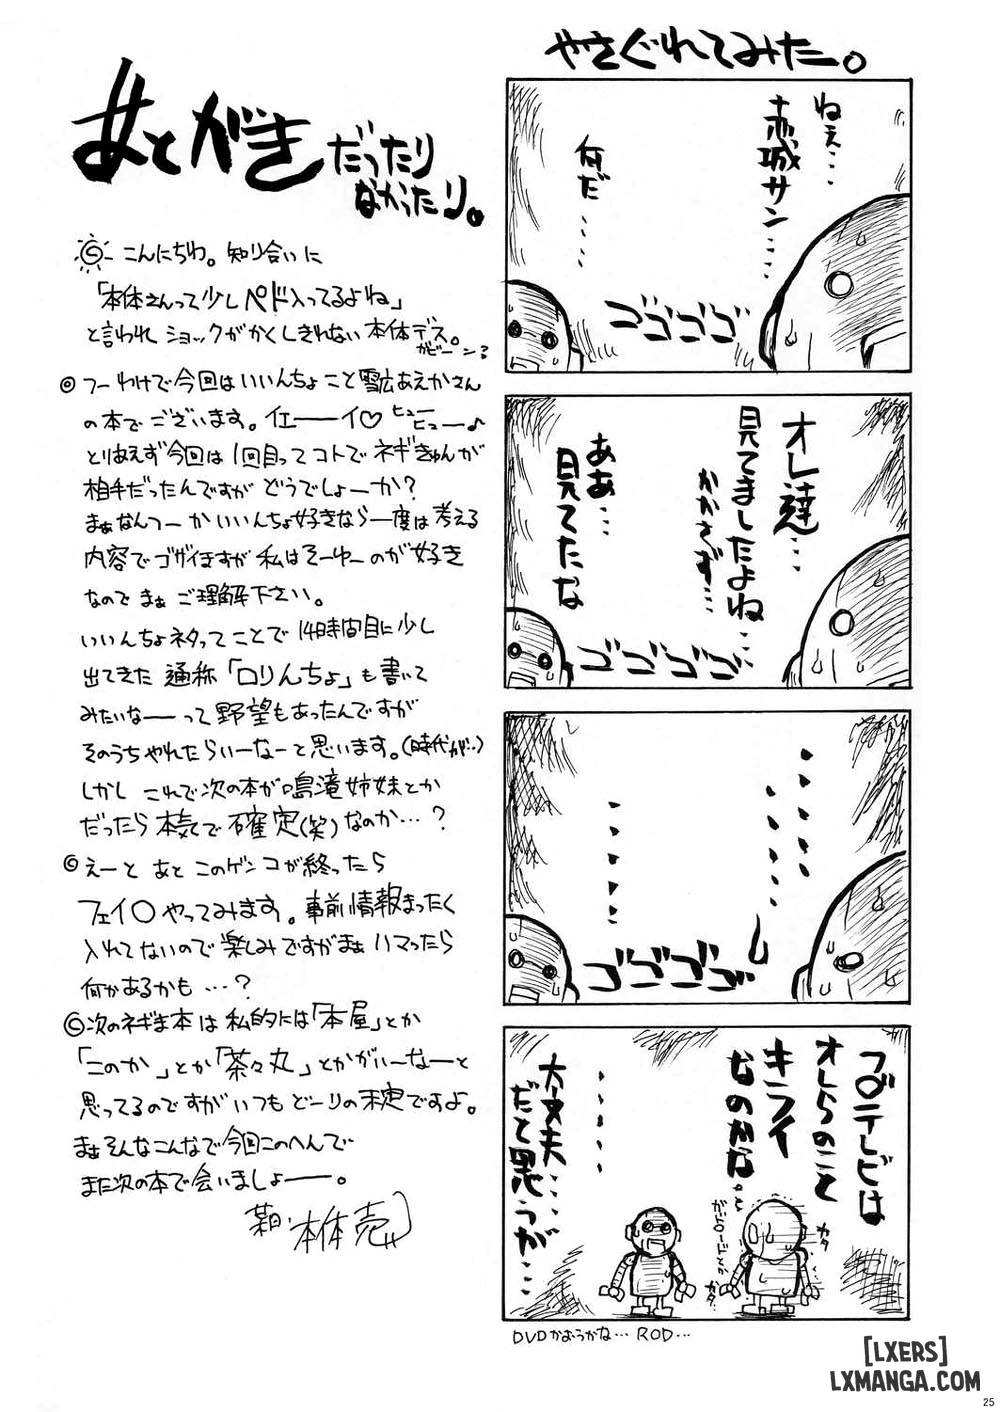 あとがきだったり
なかったり。
こんにちわ。知り合いに
「本体さんって少しペド入ってるよね」
と言われショックがかくしきれない本体デス。
ガビーン
◎つーわけで今回はいいんちょこと雪広あえかさん
の本でございます。イエーーイ♡ヒューヒュー♪
とりあえず今回は1回目ってコトでネギきゅんが
相手だったんですがどうでしょーか?
まぁなんつーかいいんちょ好きなら一度は考える
内容でゴザイますが私はそーゆーのが好き
なのでまぁご理解下さい。
いいんちょネタってことで14時間目に少し
出てきた通称「ロりんちょ」も書いて
みたいなーーって野望もあったんですが
そのうちやれたらいーなーと思います。(時代が…)
しかしこれで次の本が鳴滝姉妹とか
だったら本気で確定(笑)なのか…?
◎えーとあとこのゲンコが終ったら
フェイ〇やってみます。事前情報まったく
入れてないので楽しみですがまぁハマったら
何かあるかも…?
◎次のネギま本は私的には「本屋」とか
「このか」とか「茶々丸」とかがいーなーと
思ってるのですがいつもどーりの未定ですよ。
まぁそんなこんなで今回このへんで
また次の本で会いましょーー。
本体売
やさぐれてみた。
ねぇ…
赤城サン……
何だ……
ゴゴゴゴ
オレ達…
見てましたよね…
かかさず…
ああ…
見てたな
ゴゴゴゴ
ゴゴゴゴ
フ〇テレビは
オレらのこと
キライ
なのかな。と
がぃ〇ードとか
カタ
カタ
大丈夫……
だと思うが…
DVDかおうかな… ROD…
[LXERS]
LXMANGA.COM
25